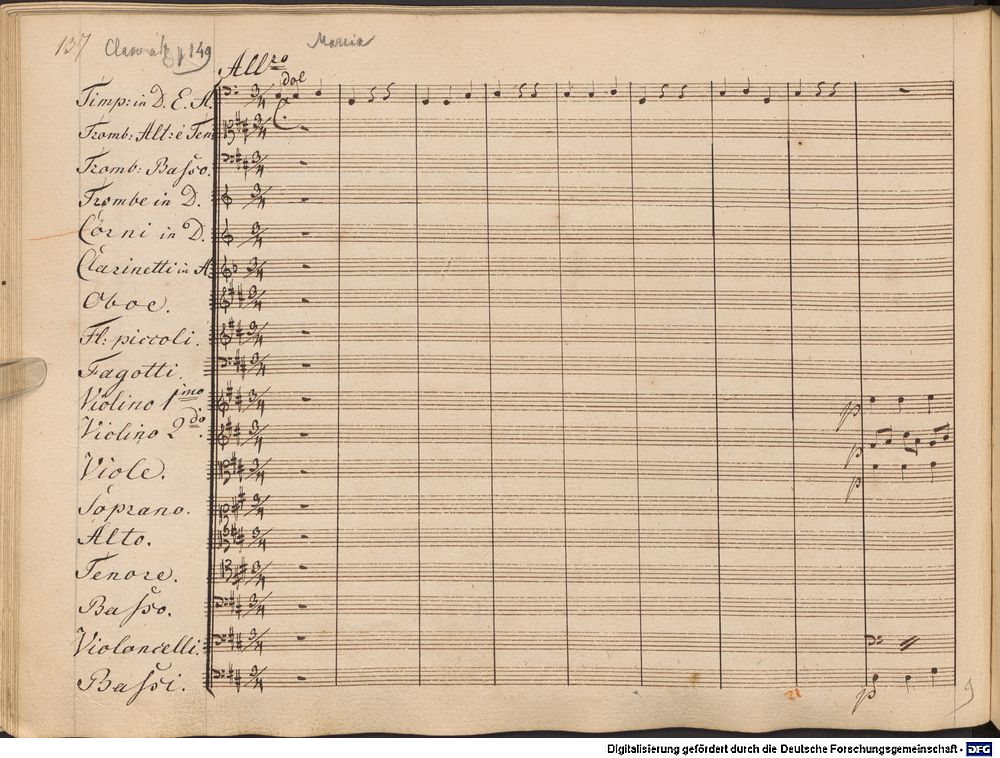 137 p 149 Marcia
All.ro
dol
Timp: in D. E. A.
Tromb: Alt: è Ten
Tromb: Basso.
Trombe in D.
Corni in D.
Clarinetti in A
Oboe.
Fl: piccoli.
Fagotti.
Violino 1mo
Violino 2do.
Viole.
Soprano.
Alto.
Tenore.
Basso.
Violoncelli.
Bassi.
p
p
p
p
21
9
Digitalisierung gefördert durch die Deutsche Forschungsgemeinschaft - DFG